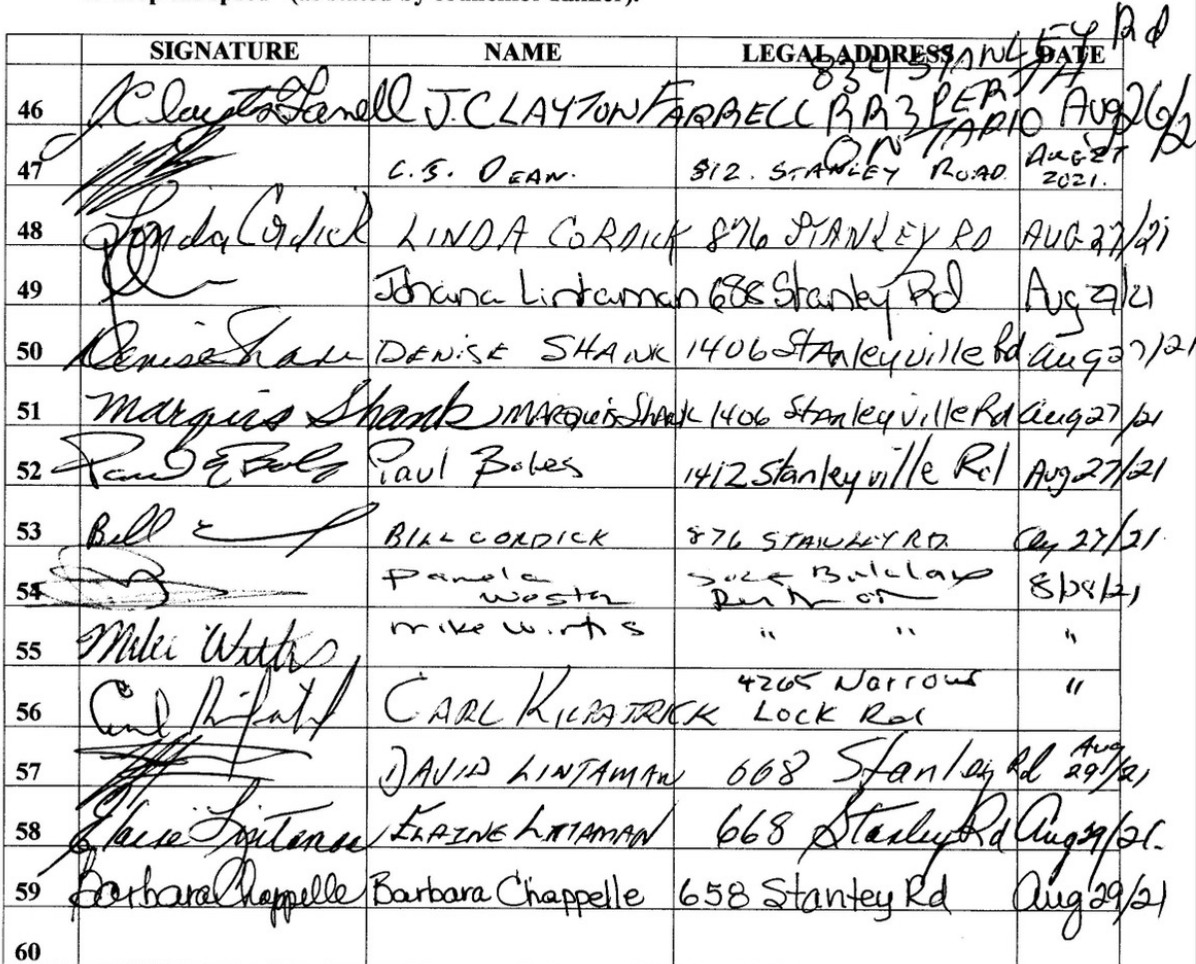 SIGNATURE NAME LEGAL ADDRESS DATE
834 STANLEY Rd
46 J Clayton Farrell J. CLAYTON FARRELL RR3 PERTH Aug 26/2
ONTARIO
47 C.S. DEAN. 812. STANLEY ROAD. AUG 27 2021.
48 Linda Cordick LINDA CORDICK 876 STANLEY RD AUG 27/21
49 Johana Lintaman 688 Stanley Rd Aug 27/21
50 Denise Shank DENISE SHANK 1406 Stanleyville Rd Aug 27/21
51 Marquis Shank MARQUIS Shank 1406 Stanleyville Rd Aug 27/21
52 Paul Boles 1412 Stanleyville Rd Aug 27/21
53 Bill BILL CORDICK 876 STANLEY RD. 27/21
54 Pamela 8/28/21
55 Mike mike " " "
56 Carl Kilpatrick CARL KILPATRICK 4265 Narrows "
LOCK Rd
57 DAVID LINTAMAN 668 Stanley Rd Aug 29/21
58 Elaine Lintaman ELAINE LINTAMAN 668 Stanley Rd Aug 29/21.
59 Barbara Chappelle Barbara Chappelle 658 Stanley Rd Aug 29/21
60